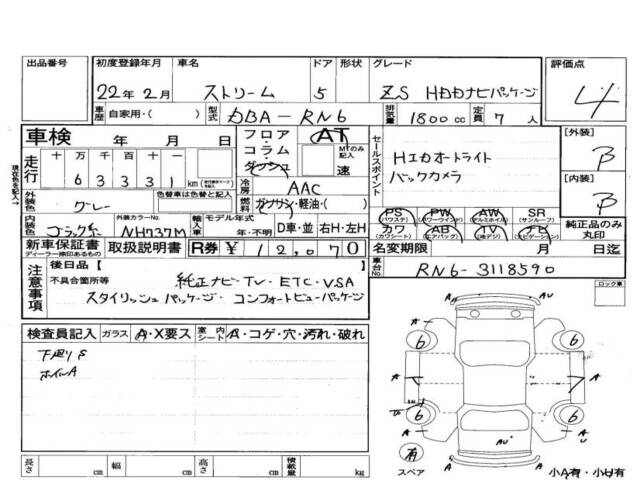 出品番号 初度登録年月 車名 ドア 形状 グレード 評価点
22年2月 ストリーム 5 ZS HDDナビパッケージ 4
車歴 自家用・( ) 型式 DBA-RN6 排気量 1800cc 定員 7人
現在色を記入
車検 年 月 日 フロア・コラム・ダッシュ AT MTのみ記入 速
走行 十万千百十一 63331km
冷房 AAC
セールスポイント
HIDオートライト
バックカメラ
[外装] B
[内装] B
外装色 グレー 色替車は色替と記入 燃料 ガソリン・軽油・( )
内装色 ブラック系 外装カラーNo. NH737M 輸入車 モデル年式 年・不明 D車・並 右H・左H
PS (パワステ) PW (パワーウインド) AW (アルミホイル) SR (サンルーフ)
カワ (カワシート) AB (エアバック) TV (地デジ) (ナビゲーション)
純正品のみ丸印
新車保証書 ディーラー印あるもの 取扱説明書 R券 ¥12,070 名変期限 月 日迄
注意事項 後日品【 】
不具合箇所等
純正ナビ・TV・ETC・VSA
スタイリッシュパッケージ・コンフォートビューパッケージ
車台No. RN6-3118590
ロック車
検査員記入 ガラス A・X要ス 室内シート A・コゲ・穴・汚れ・破れ
下廻りS
ホイルA
A AU
6 6
A A A
6 6
A A
U
AU
有
スペア
A
小A有・小U有
長さ cm 幅 cm 高さ cm 積載量 kg